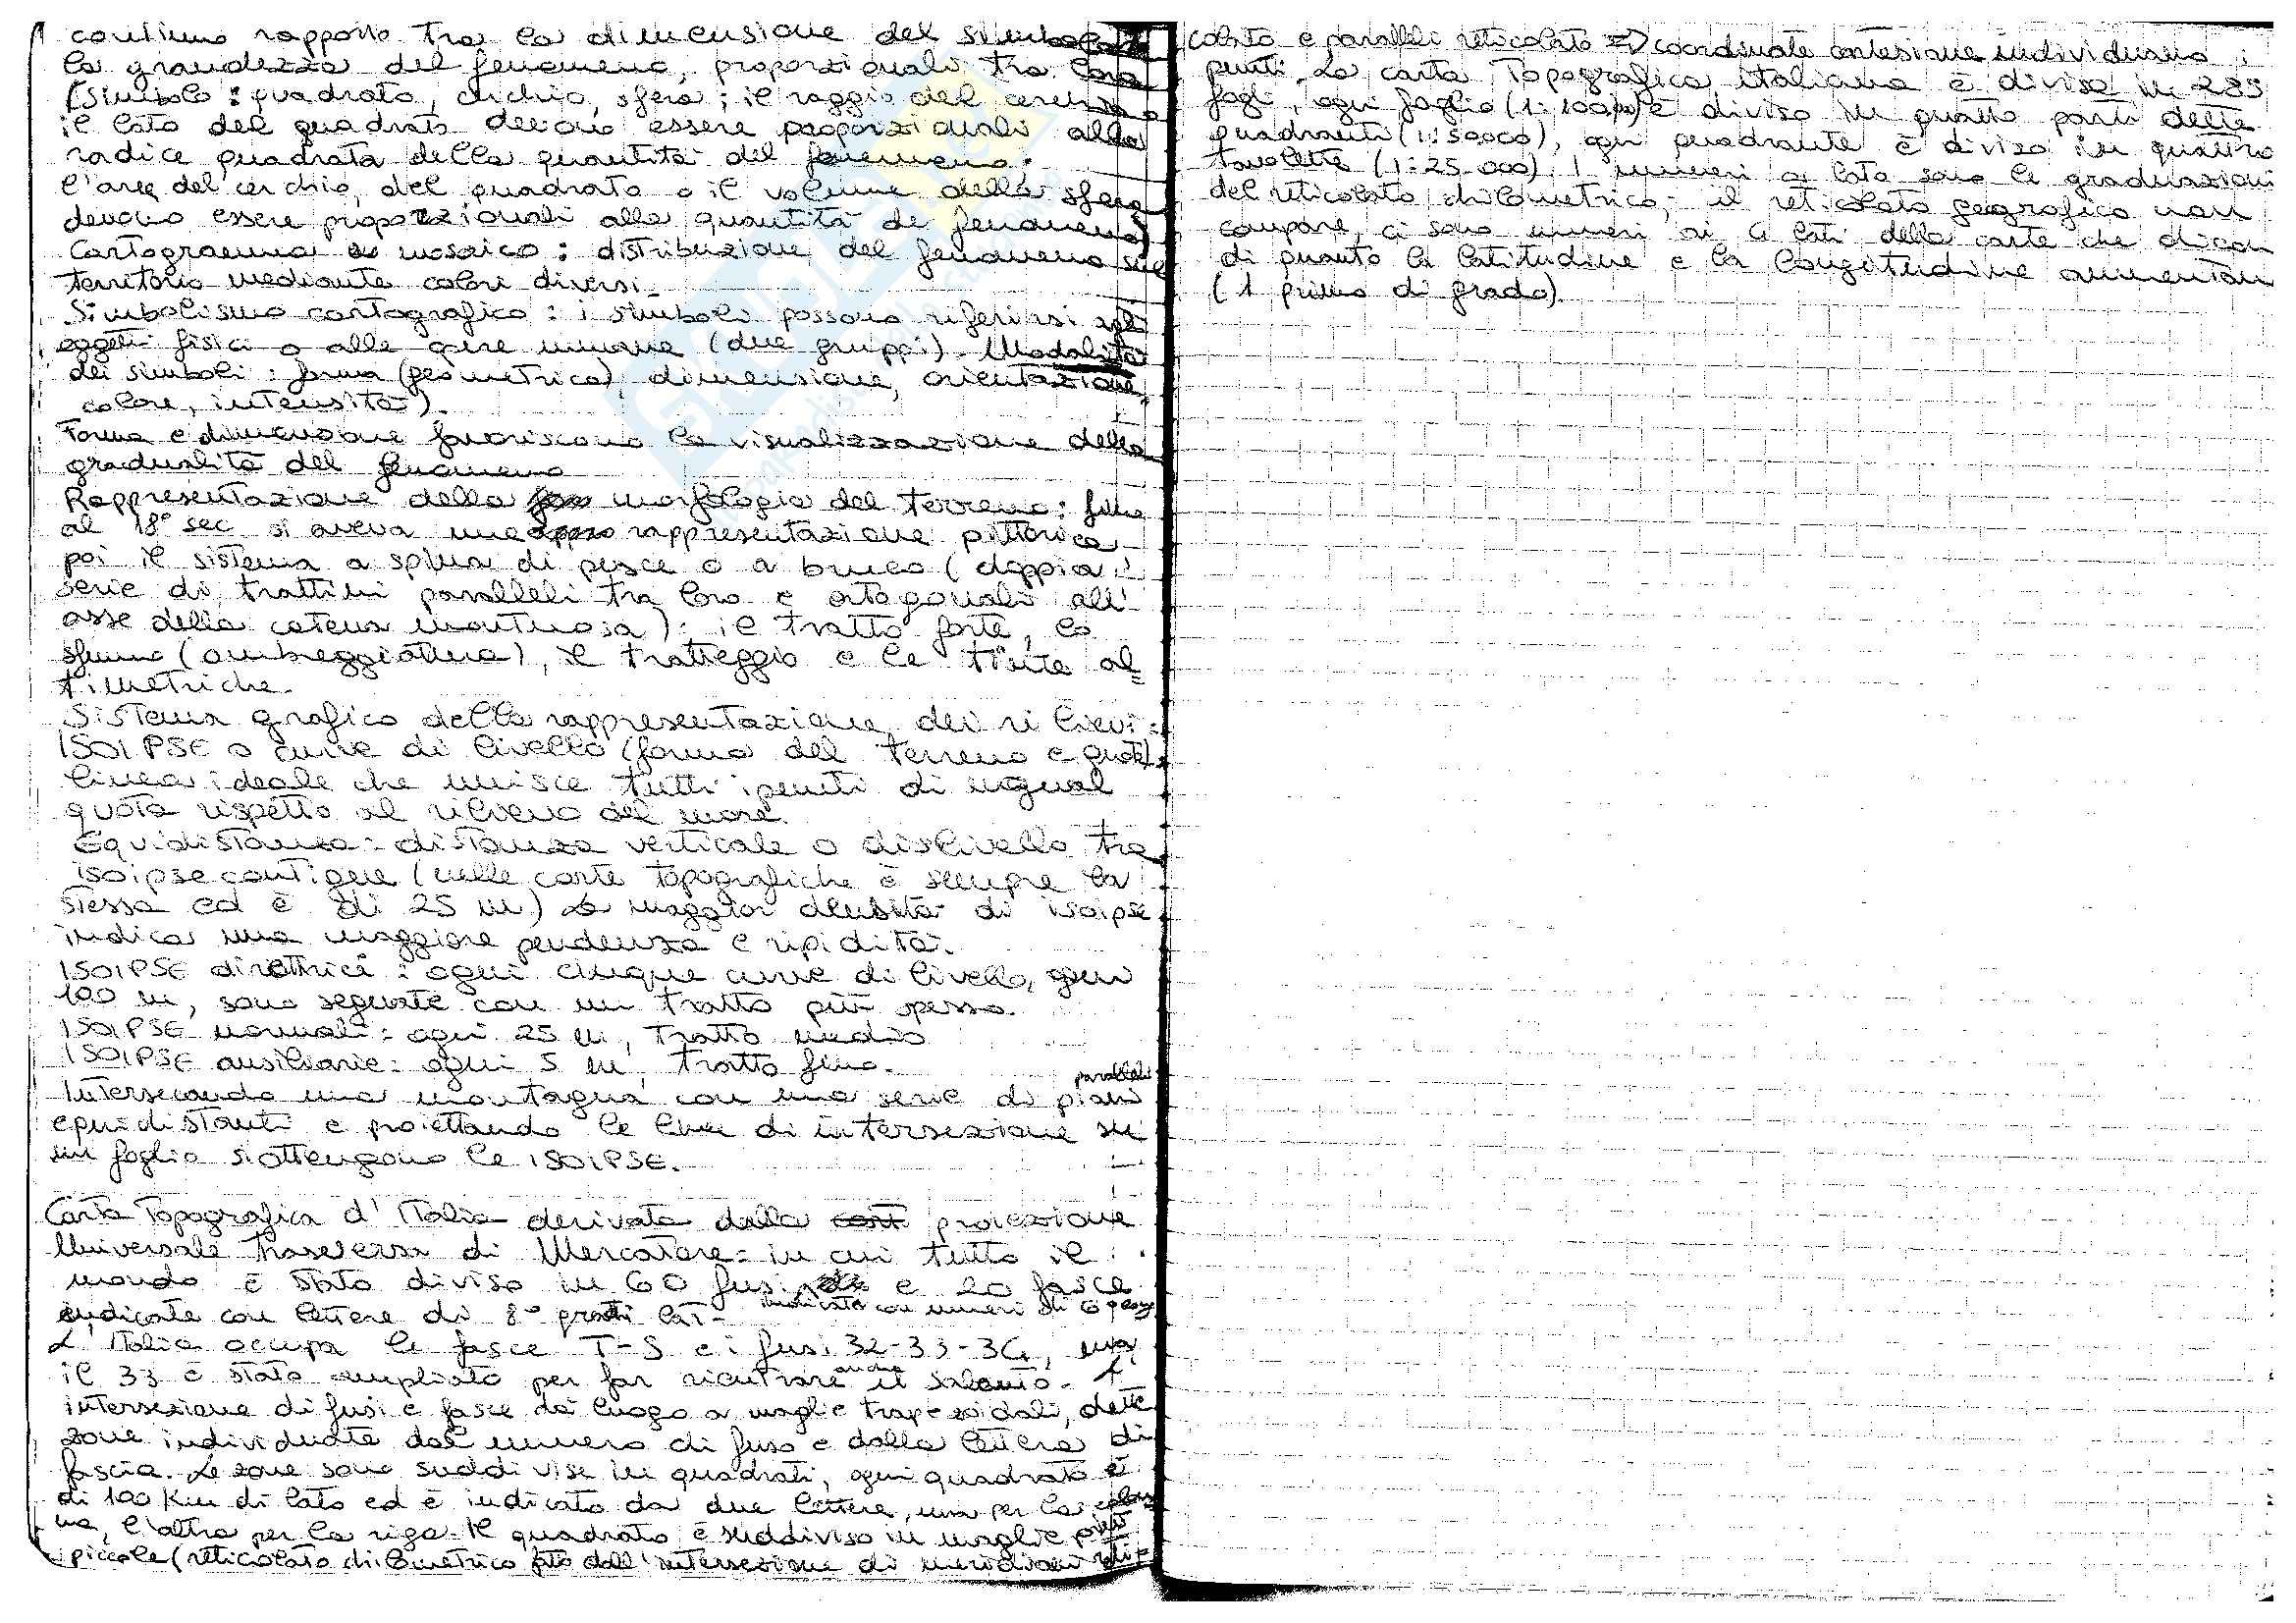 continuo rapporto tra la dimensione del simbolo e
la grandezza del fenomeno, proporzionali tra loro
(simbolo: quadrato, cerchio, sfera; il raggio del cerchio o
il lato del quadrato devono essere proporzionali alla
radice quadrata della quantità del fenomeno.
l'area del cerchio, del quadrato o il volume della sfera
devono essere proporzionali alla quantità de fenomeno)
Cartogramma a mosaico: distribuzione del fenomeno sul
territorio mediante colori diversi.
Simbolismo cartografico: i simboli possono riferirsi agli
oggetti fisici o alle opere umane (due gruppi). Modalità
dei simboli: forma (geometrica), dimensione, orientazione,
colore, intensità).
Forma e dimensione favoriscono la visualizzazione della
gradualità del fenomeno
Rappresentazione della morfologia del terreno: fino
al 18° sec si aveva una rappresentazione pittorica
poi il sistema a spina di pesce o a bruco (doppia
serie di trattini paralleli tra loro e ortogonali all'
asse della catena montuosa): il tratto forte, lo
sfumo (ombreggiatura), il tratteggio e le tinte al=
timetriche.
Sistema grafico della rappresentazione dei rilievi:
ISOIPSE o curve di livello (forma del terreno e quote).
linea ideale che unisce tutti i punti di ugual
quota rispetto al rilievo del mare.
Equidistanza: distanza verticale o dislivello tra
isoipse contigue (nelle carte topografiche è sempre la
stessa ed è di 25 m) La maggior densità di isoipse
indica una maggiore pendenza e ripidità.
ISOIPSE direttrici: ogni cinque curve di livello, ogni
100 m, sono segnate con un tratto più spesso.
ISOIPSE normali: ogni 25 m, tratto medio
ISOIPSE ausiliarie: ogni 5 m, tratto fino.
Intersecando una montagna con una serie di piani paralleli
equidistanti e proiettando le linee di intersezione su
un foglio si ottengono le ISOIPSE.
Carta Topografica d'Italia derivata dalla proiezione
Universale Trasversa di Mercatore: in cui tutto il
mondo è stato diviso in 60 fusi e 20 fasce
indicati con numeri di 6° long
indicate con lettere di 8° gradi lat.
L'Italia occupa le fasce T-S e i fusi 32-33-34, ma
il 33 è stato ampliato per far rientrare anche il Salento. L'
intersezione di fusi e fasce dà luogo a maglie trapezoidali, dette
zone individuate dal numero di fuso e dalla lettera di
fascia. Le zone sono suddivise in quadrati, ogni quadrato è
di 100 Km di lato ed è indicato da due lettere, una per la colon
na, l'altra per la riga. Il quadrato è suddiviso in maglie più
piccole (reticolato chilometrico fatto dall'intersezione di meridiani reti=
colato e paralleli reticolato => coordinate cartesiane individuano i
punti. La carta Topografica italiana è divisa in 285
fogli, ogni foglio (1:100000) è diviso in quattro parti dette
quadranti (1:50000), ogni quadrante è diviso in quattro
tavolette (1:25.000). I numeri a lato sono le graduazioni
del reticolato chilometrico; il reticolato geografico non
compare, ci sono numeri ai 4 lati della carta che dicon
di quanto la latitudine e la longitudine aumentan
(1 primo di grado).